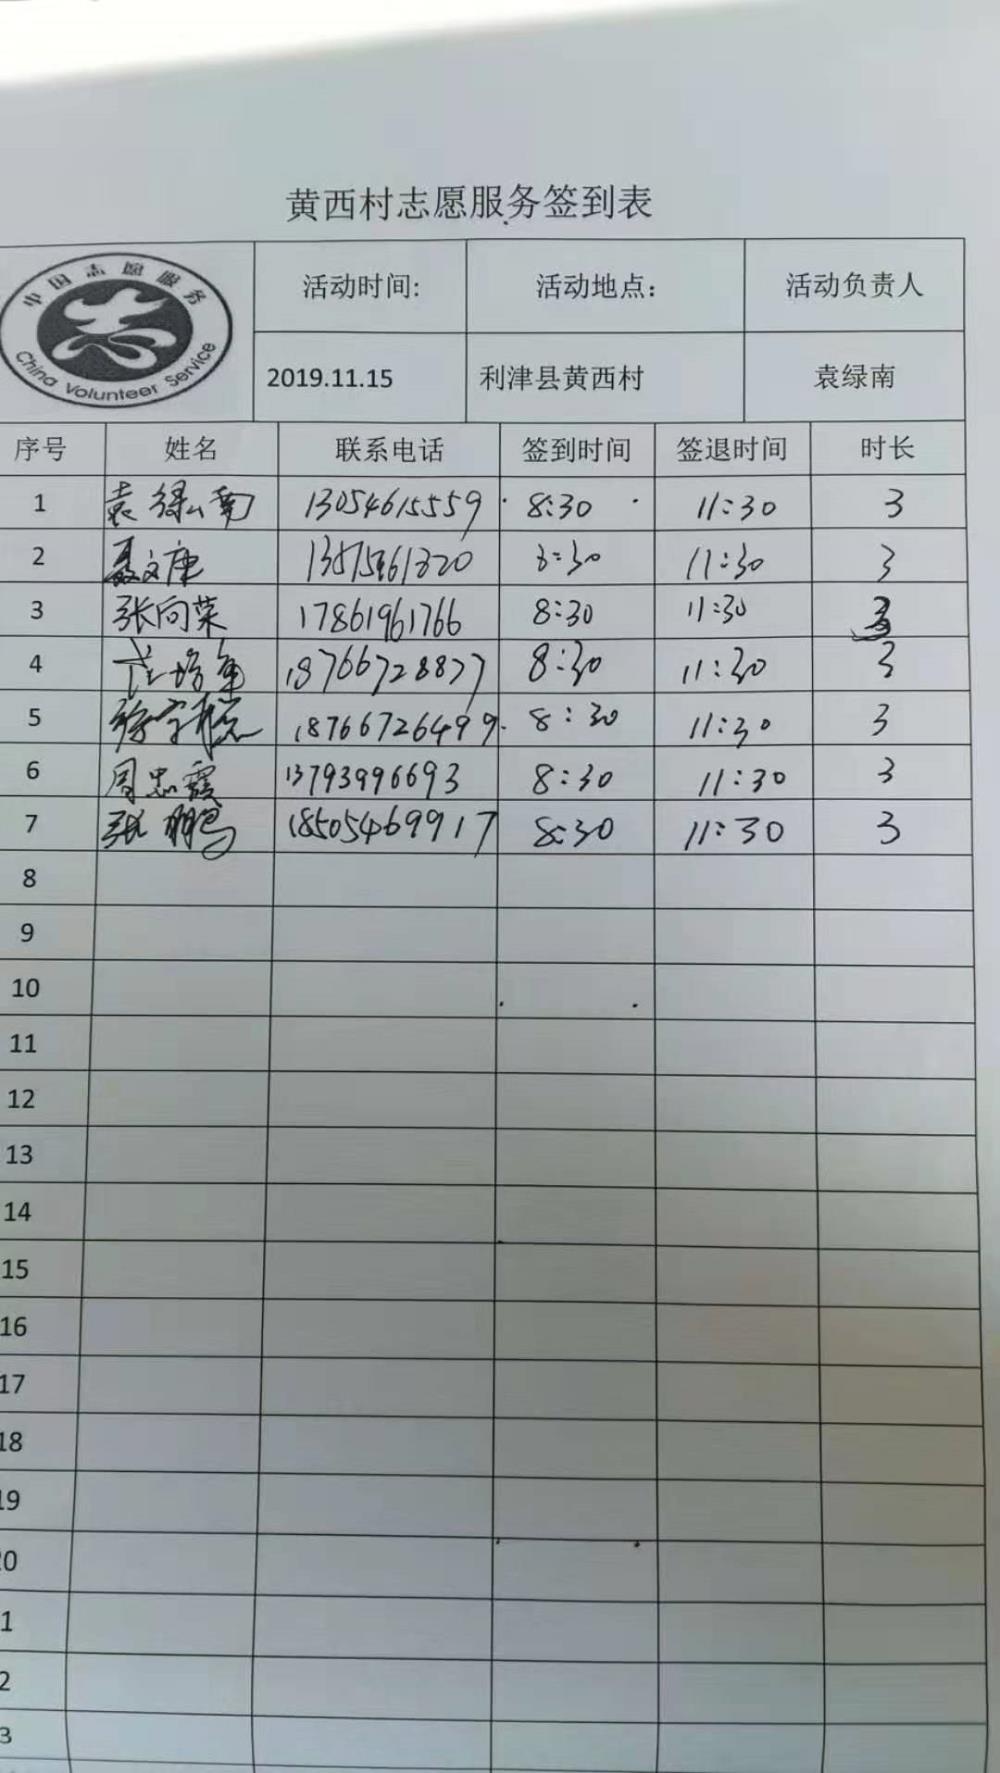 黄西村志愿服务签到表
中国志愿服务
China Volunteer Service
活动时间: 活动地点: 活动负责人
2019.11.15 利津县黄西村 袁绿南
序号 姓名 联系电话 签到时间 签退时间 时长
1 袁绿南 13054615559 8:30 11:30 3
2 聂文康 8:30 11:30 3
3 张向荣 17861961766 8:30 11:30 3
4 18766728877 8:30 11:30 3
5 18766726499 8:30 11:30 3
6 周忠霞 13793996693 8:30 11:30 3
7 张鹏 18505469917 8:30 11:30 3
8
9
10
11
12
13
14
15
16
17
18
19
0
1
2
3